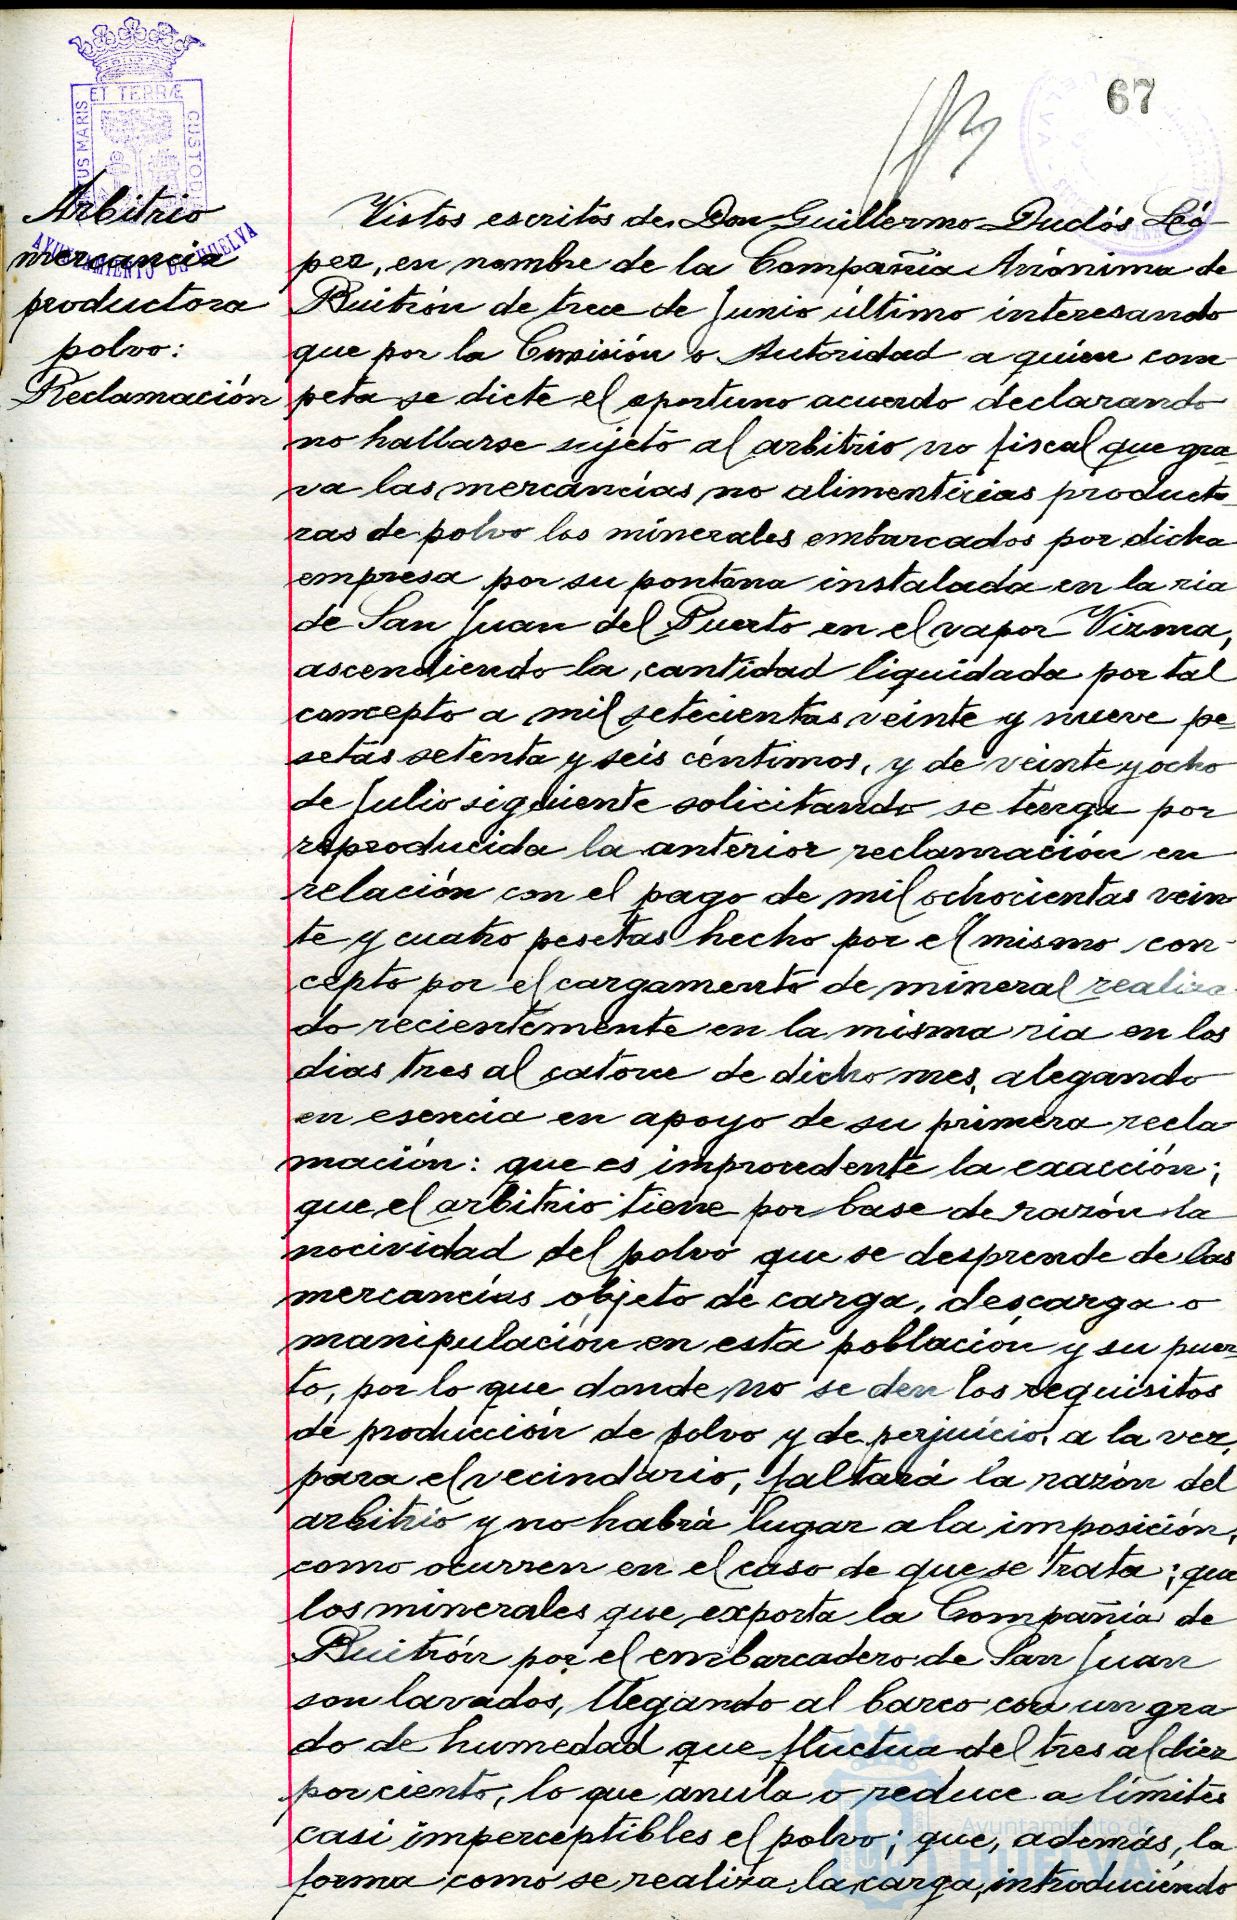 67
ET TERRÆ
MARIS
AYUNTAMIENTO DE HUELVA
Arbitrio
mercancia
productora
polvo:
Reclamación
Vistos escritos de Don Guillermo Dudós Ló
pez, en nombre de la Compañia Anónima de
Buitrón de trece de Junio último interesando
que por la Comisión o Autoridad a quien com
peta se dicte el oportuno acuerdo declarando
no hallarse sujeto al arbitrio no fiscal que gra-
va las mercancías no alimenticias producto-
ras de polvo los minerales embarcados por dicha
empresa por su pontona instalada en la ria
de San Juan del Puerto en el vapor Virma,
ascendiendo la cantidad liquidada por tal
concepto a mil setecientas veinte y nueve pe-
setas setenta y seis céntimos, y de veinte y ocho
de Julio siguiente solicitando se tenga por
reproducida la anterior reclamación en
relación con el pago de mil ochocientas vein
te y cuatro pesetas hecho por el mismo con-
cepto por el cargamento de mineral realiza-
do recientemente en la misma ria en los
dias tres al catorce de dicho mes, alegando
en esencia en apoyo de su primera recla
mación: que es improcedente la exacción;
que el arbitrio tiene por base de razón la
nocividad del polvo que se desprende de las
mercancías objeto de carga, descarga o
manipulación en esta población y su puer-
to, por lo que donde no se den los requisitos
de producción de polvo y de perjuicio, a la vez,
para el vecindario, faltará la razón del
arbitrio y no habrá lugar a la imposición,
como ocurren en el caso de que se trata; que
los minerales que exporta la Compañia de
Buitrón por el embarcadero de San Juan
son lavados, llegando al barco con un gra
do de humedad que fluctua del tres al diez
por ciento, lo que anula o reduce a límites
casi imperceptibles el polvo; que, además, la
forma como se realiza la carga, introduciendo
Ayuntamiento de
HUELVA